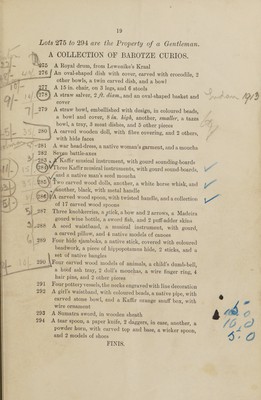 19
Lots 275 to 294 are the Property of a Gentleman.
A COLLECTION OF BAROTZE CURIOS.
275 A Royal drum, from Lewanika's Kraal
276 An oval-shaped dish with cover, carved with crocodile, 2
other bowls, a twin carved dish, and a bowl
277 A 15 in. chair, on 3 legs, and 6 steels
278 A straw salver, 2 ft. diam., and an oval-shaped basket and
cover
279 A straw bowl, embellished with design, in coloured beads,
a bowl and cover, 9 in. high, another, smaller, a taxus
bowl, a tray, 8 meat dishes, and 2 other pieces
280 A carved wooden doll, with fibre covering, and 2 others,
with hide faces
281 A war head-dress, a native woman's garment, and a moocha
282 Seven battle-axes
283 A Kaffir musical instrument, with gourd sounding-boards
284 Three Kaffir musical instruments, with gourd sound-boards,
and a native man's seed moucha
285 Two carved wood dolls, another, a white horse whisk, and
another, black, with metal handle
286 A carved wood spoon, with twisted handle, and a collection
of 17 carved wood spoons
287 Three knobkerries, a stick, a bow and 2 arrows, a Madeira
gourd wine bottle, a sword fish, and 2 puff adder skins
288 A seed waistband, a musical instrument, with gourd,
a carved pillow, and 4 native models of canoes
289 Four hide sjamboks, a native stick, covered with coloured
beadwork, a piece of hippopotamus hide, 2 sticks, and a
set of native bangles
290 Four carved wood models of animals, a child's dumb-bell,
a food ash tray, 3 doll's moochas, a wire finger ring, 4
hair pins, and 2 other pieces
291 Four pottery vessels, the necks engraved with line decoration
292 A girl's waistband, with coloured beads, a native pipe, with
carved stone bowl, and a Kaffir orange snuff box, with
wire ornament
293 A Sumatra sword, in wooden sheath
294 A tsar spoon, a paper knife, 2 daggers, in case, another, a
powder horn, with carved top and base, a wicker spoon,
and 2 models of shoes
FINIS.